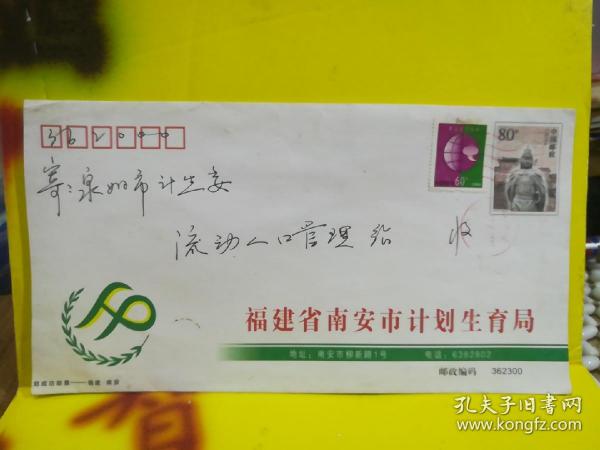 362000
80分
中国邮政
60分
寄:泉州市计生委
流动人口管理站 收
福建省南安市计划生育局
地址:南安市柳新路1号 电话:6382802
邮政编码 362300
孔夫子旧书网
www.kongfz.com